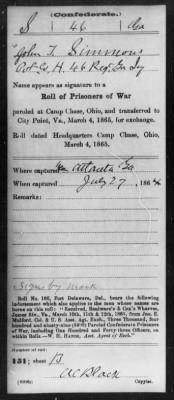 (Confederate.)
S 46 Ga
John T. Simmons
Pvt Co. H, 46 Reg. Ga Inf
Name appears as signature to a
Roll of Prisoners of War
paroled at Camp Chase, Ohio, and transferred to
City Point, Va., March 4, 1865, for exchange.
Roll dated Headquarters Camp Chase, Ohio,
March 4, 1865.
Where captured Nr Atlanta Ga
When captured July 27, 1864
Remarks:
Signs by mark
Roll No. 165, Fort Delaware, Del., bears the following
indorsement which also applies to the men whose names are
borne on this roll: "Received, Boulware's & Cox's Wharves,
James Riv., Va., March 10th, 11th & 12th, 1865, from Jno. E.
Mulford, Col. & U. S. Asst. Agt. Exch., Three Thousand, four
hundred and ninety-nine Paroled Confederate Prisoners
of War, including One Hundred and Forty-three Officers, on
within Rolls.—W. H. Hatch, Asst. Agent of Exch."
Number of roll:
151; sheet 13
A C Black
Copyist.